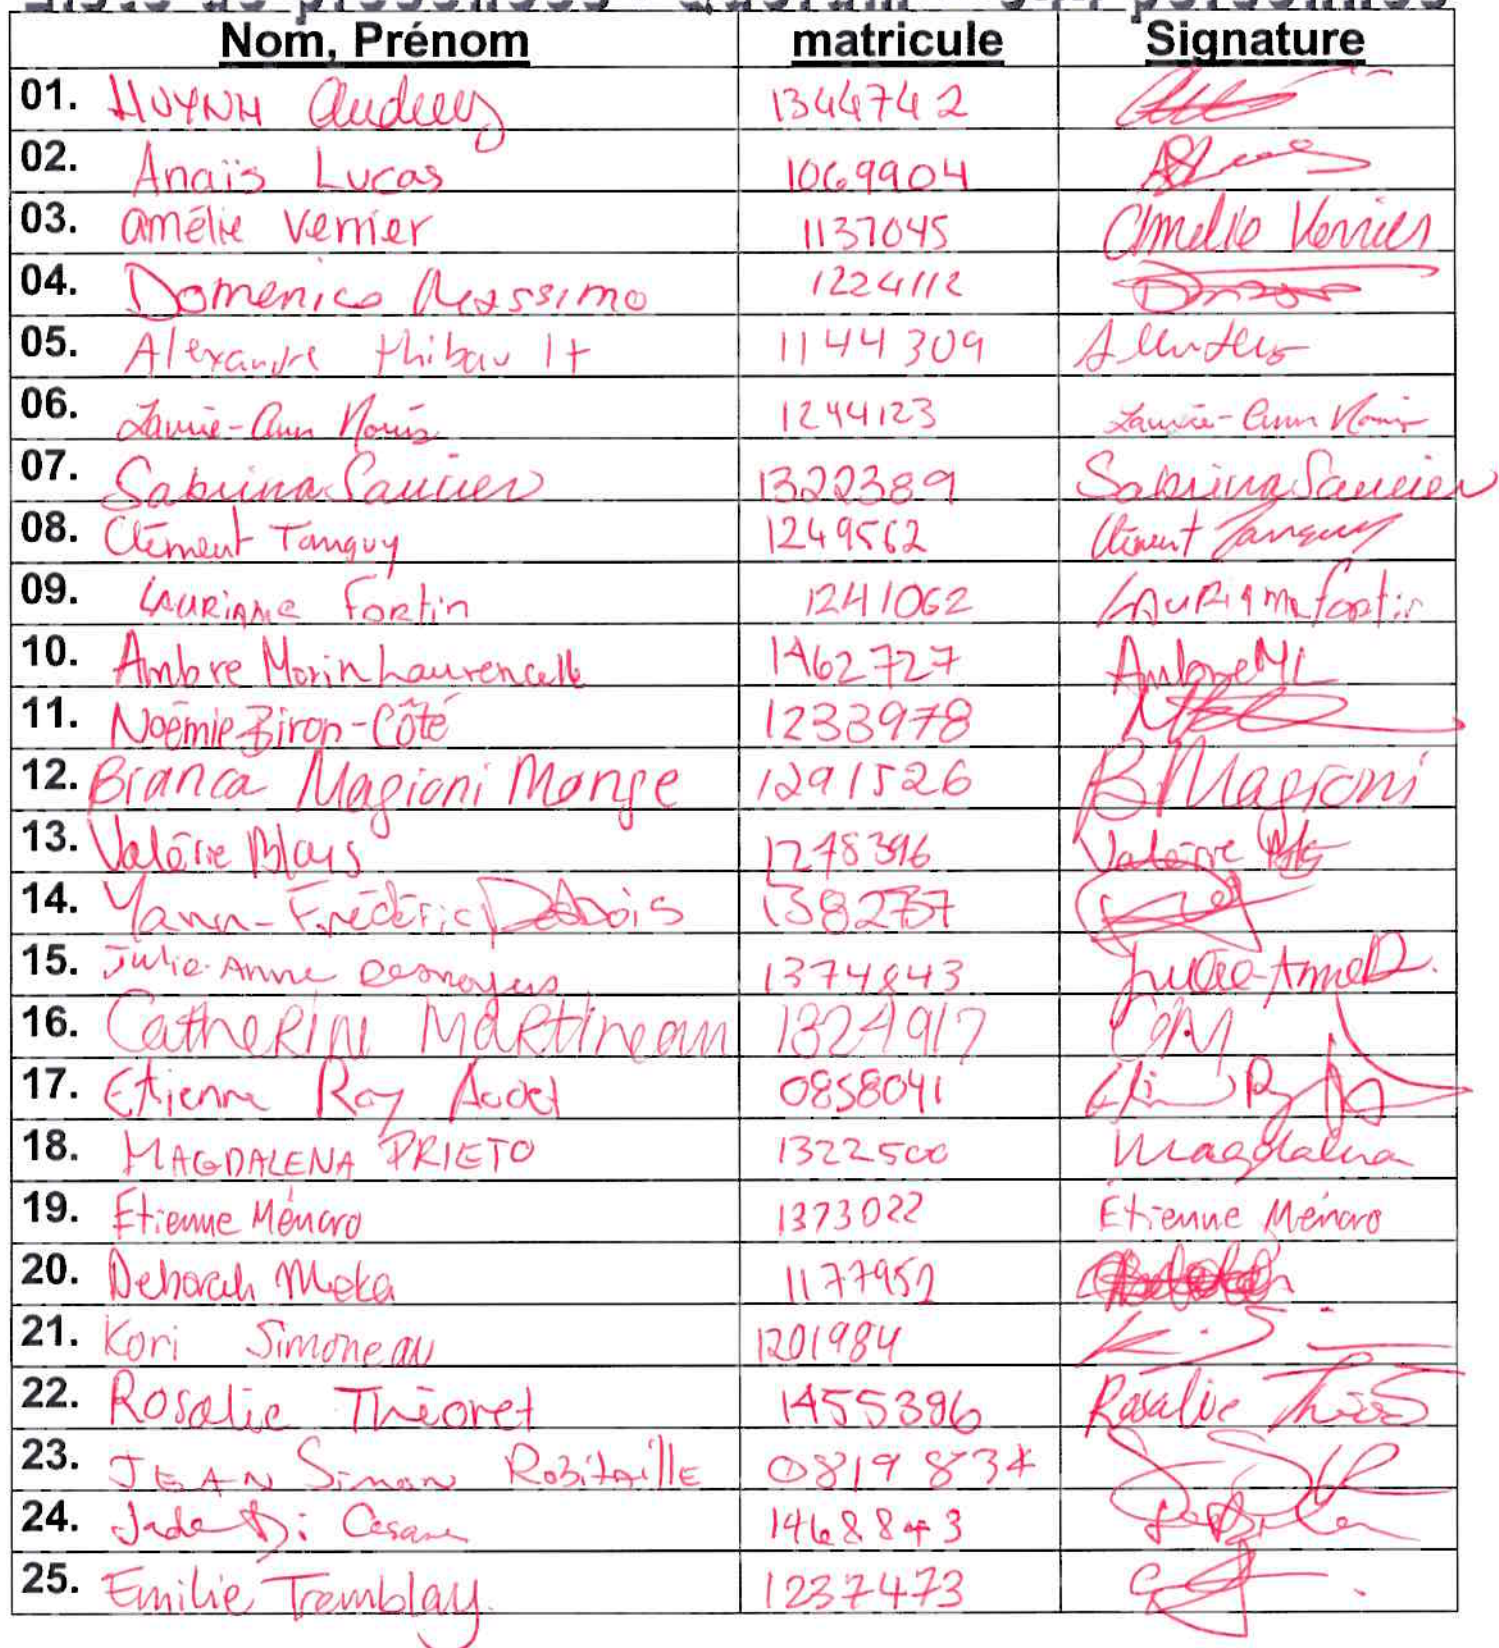 Liste de présences - Quorum - 544 personnes
Nom, Prénom matricule Signature
01. HUYNH Audrey 1344742
02. Anaïs Lucas 1069904
03. Amélie Verrier 1137045 Amélie Verrier
04. Domenico Massimo 1224112
05. Alexandre thibault 1144309
06. Laurie-Ann Nouis 1244123 Laurie-Ann Nouis
07. Sabrina Saucier 1322389 Sabrina Saucier
08. Clément Tanguy 1249562 Clément Tanguy
09. LAURIANE Fortin 1241062 LAURIANE fortin
10. Ambre Morin Laurencelle 1462727 Ambre ML
11. Noémie Biron-Côté 1233978
12. Bianca Magioni Monge 1291526 B Magioni
13. Valérie Blais 1248396 Valérie
14. Yann-Frédéric 1382737
15. Julie-Anne Desnoyers 1374843 Julie-Anne D.
16. CatheRine MaRtineau 1324917 CM
17. Etienne Roy Audet 0858041
18. MAGDALENA PRIETO 1322500 Magdalena
19. Étienne Ménard 1373022 Étienne Ménard
20. Deborah Meka 1177952
21. Kori Simoneau 1201984
22. Rosalie Théoret 1455396 Rosalie
23. JEAN Simon RobitaillE 0819834
24. Jade Di Cesare 1468843
25. Emilie Tremblay 1237473